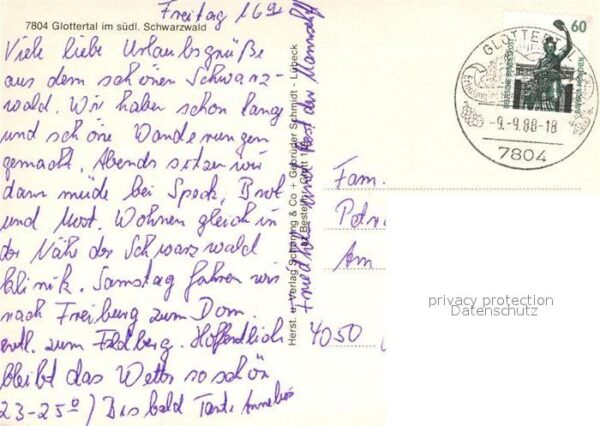 Freitag 16⁰⁰
7804 Glottertal im südl. Schwarzwald
Viele liebe Urlaubsgrüße
aus dem schönen Schwarz-
wald. Wir haben schon lang
und schöne Wanderungen
gemacht. Abends sitzen wir
dann müde bei Speck, Brot
und Most. Wohnen gleich in
der Nähe der Schwarzwald
klinik. Samstag fahren wir
nach Freiburg zum Dom.
evtl. zum Feldberg. Hoffentlich
bleibt das Wetter so schön
23-25⁰) Bis bald Tante Annelies
Herst. u. Verlag Schöning & Co + Gebrüder Schmidt - Lübeck
Bestell-Nr. Glott
und Rest der Mannschaft
60
GLOTTERTAL
-9.-9.88-18
7804
Fam.
Petr
Am
4050
privacy protection
Datenschutz